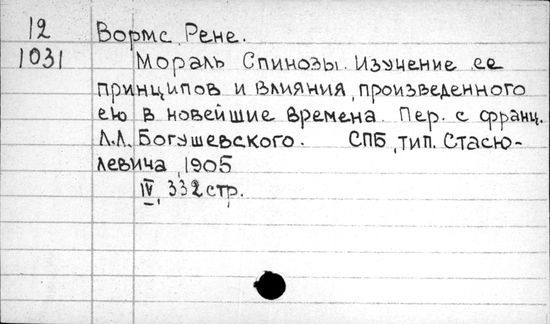 12 Вормс, Рене.
1031 Мораль Спинозы. Изучение ее
принципов и влияния, произведенного
ею в новейшие времена. Пер. с франц.
Л.Л. Богушевского. СПБ, тип. Стасю-
левича, 1905
IV, 332 стр.